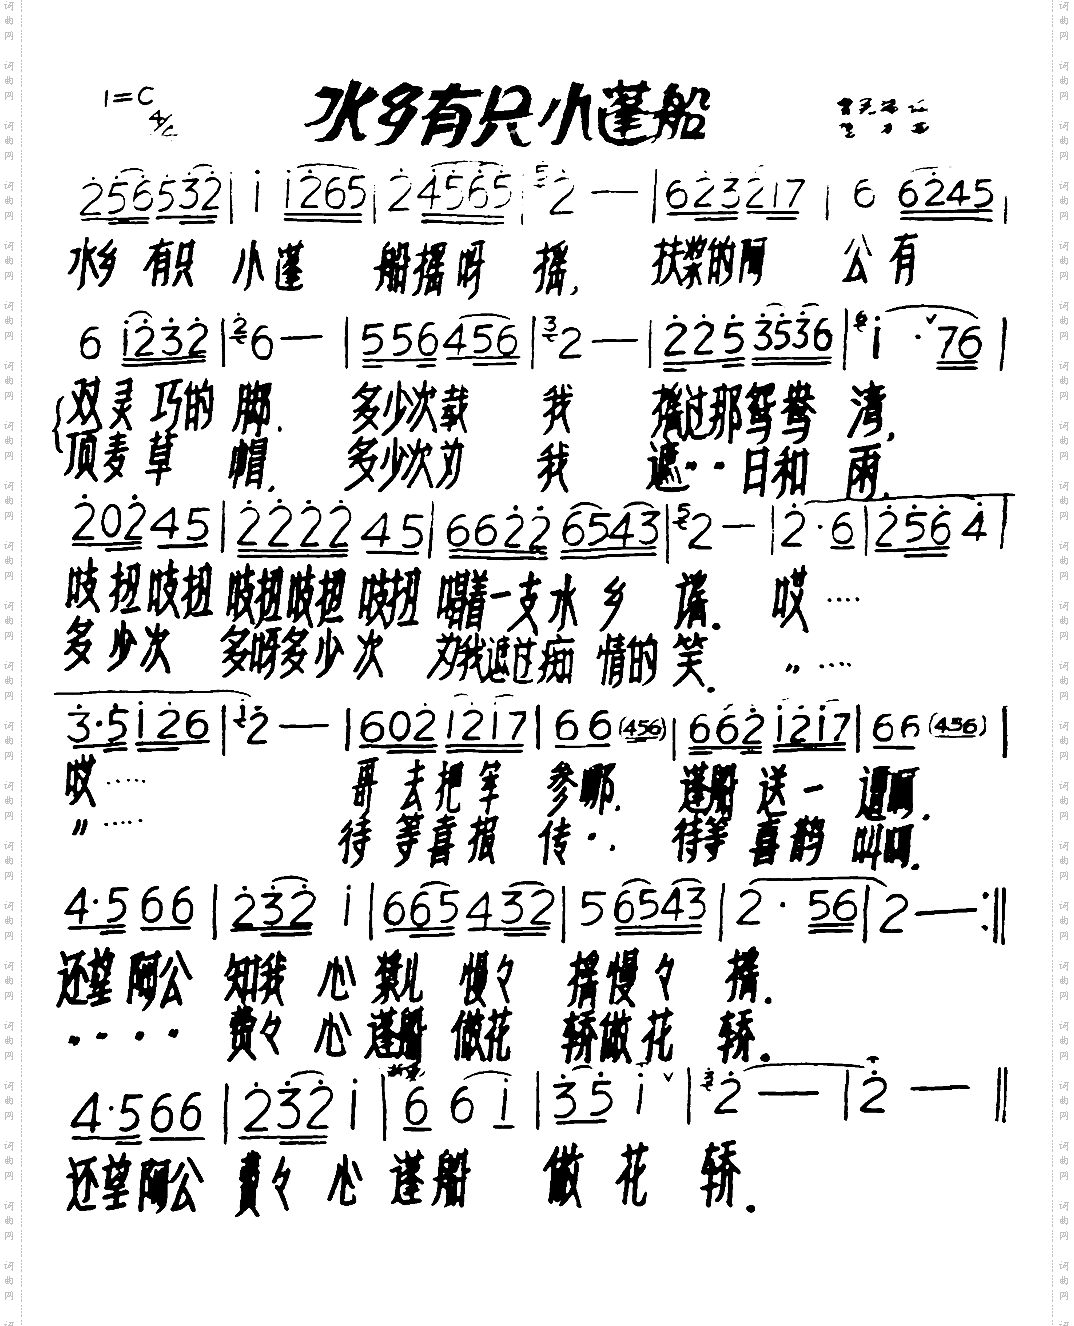 水乡有只小蓬船
1=C 4/4
2 5 6 5 3 2 | i | i 2 6 5 | 2 4 5 6 5 | 2 — | 6 2 3 2 1 7 | 6 6 2 4 5 |
水乡 有只 小蓬 船摇呀 摇, 扶桨的阿 公有
6 i 2 3 2 | 6 — | 5 5 6 4 5 6 | 2 — | 2 2 5 3 5 3 6 | i · 7 6 |
双灵巧的 脚. 多少次载 我 摇过那鸳鸯 湾,
顶麦草 帽. 多少次为 我 遮·· 日和 雨.
2 0 2 4 5 | 2 2 2 2 4 5 | 6 6 2 2 6 5 4 3 | 2 — | 2 · 6 | 2 5 6 4 |
吱扭吱扭 吱扭吱扭 吱扭 唱着一支水乡 谣. 哎 ····
多少次 多呀多少次 为我遮过痴情的 笑. 〃 ····
3 · 5 i 2 6 | 2 — | 6 0 2 1 2 i 7 | 6 6 (4 5 6) | 6 6 2 i 2 i 7 | 6 6 (4 5 6) |
哎 ····· 哥 去把军 参哪. 蓬船 送一 遭啊.
〃 ····· 待 等喜报 传·. 待等 喜鹊 叫啊.
4 · 5 6 6 | 2 3 2 i | 6 6 5 4 3 2 | 5 6 5 4 3 | 2 · 5 6 | 2 — :‖
还望阿公 知我 心 桨儿 慢々 摇慢々 摇.
···· 费々 心 蓬船 做花 轿做花 轿.
4 · 5 6 6 | 2 3 2 i | 6 6 i | 3 5 i | 2 — | 2 — ‖
还望阿公 费々 心 蓬船 做花 轿.
词曲网